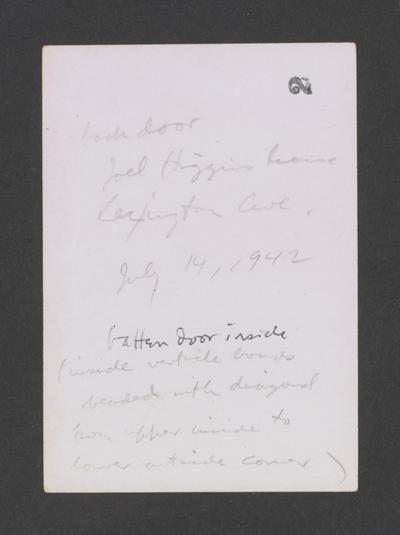 2
back door
Joel Higgins house
Lexington Ave.
July 14, 1942
batten door inside
(inside verticle boards
beaded with diagonal
from upper inside to
lower outside corner)